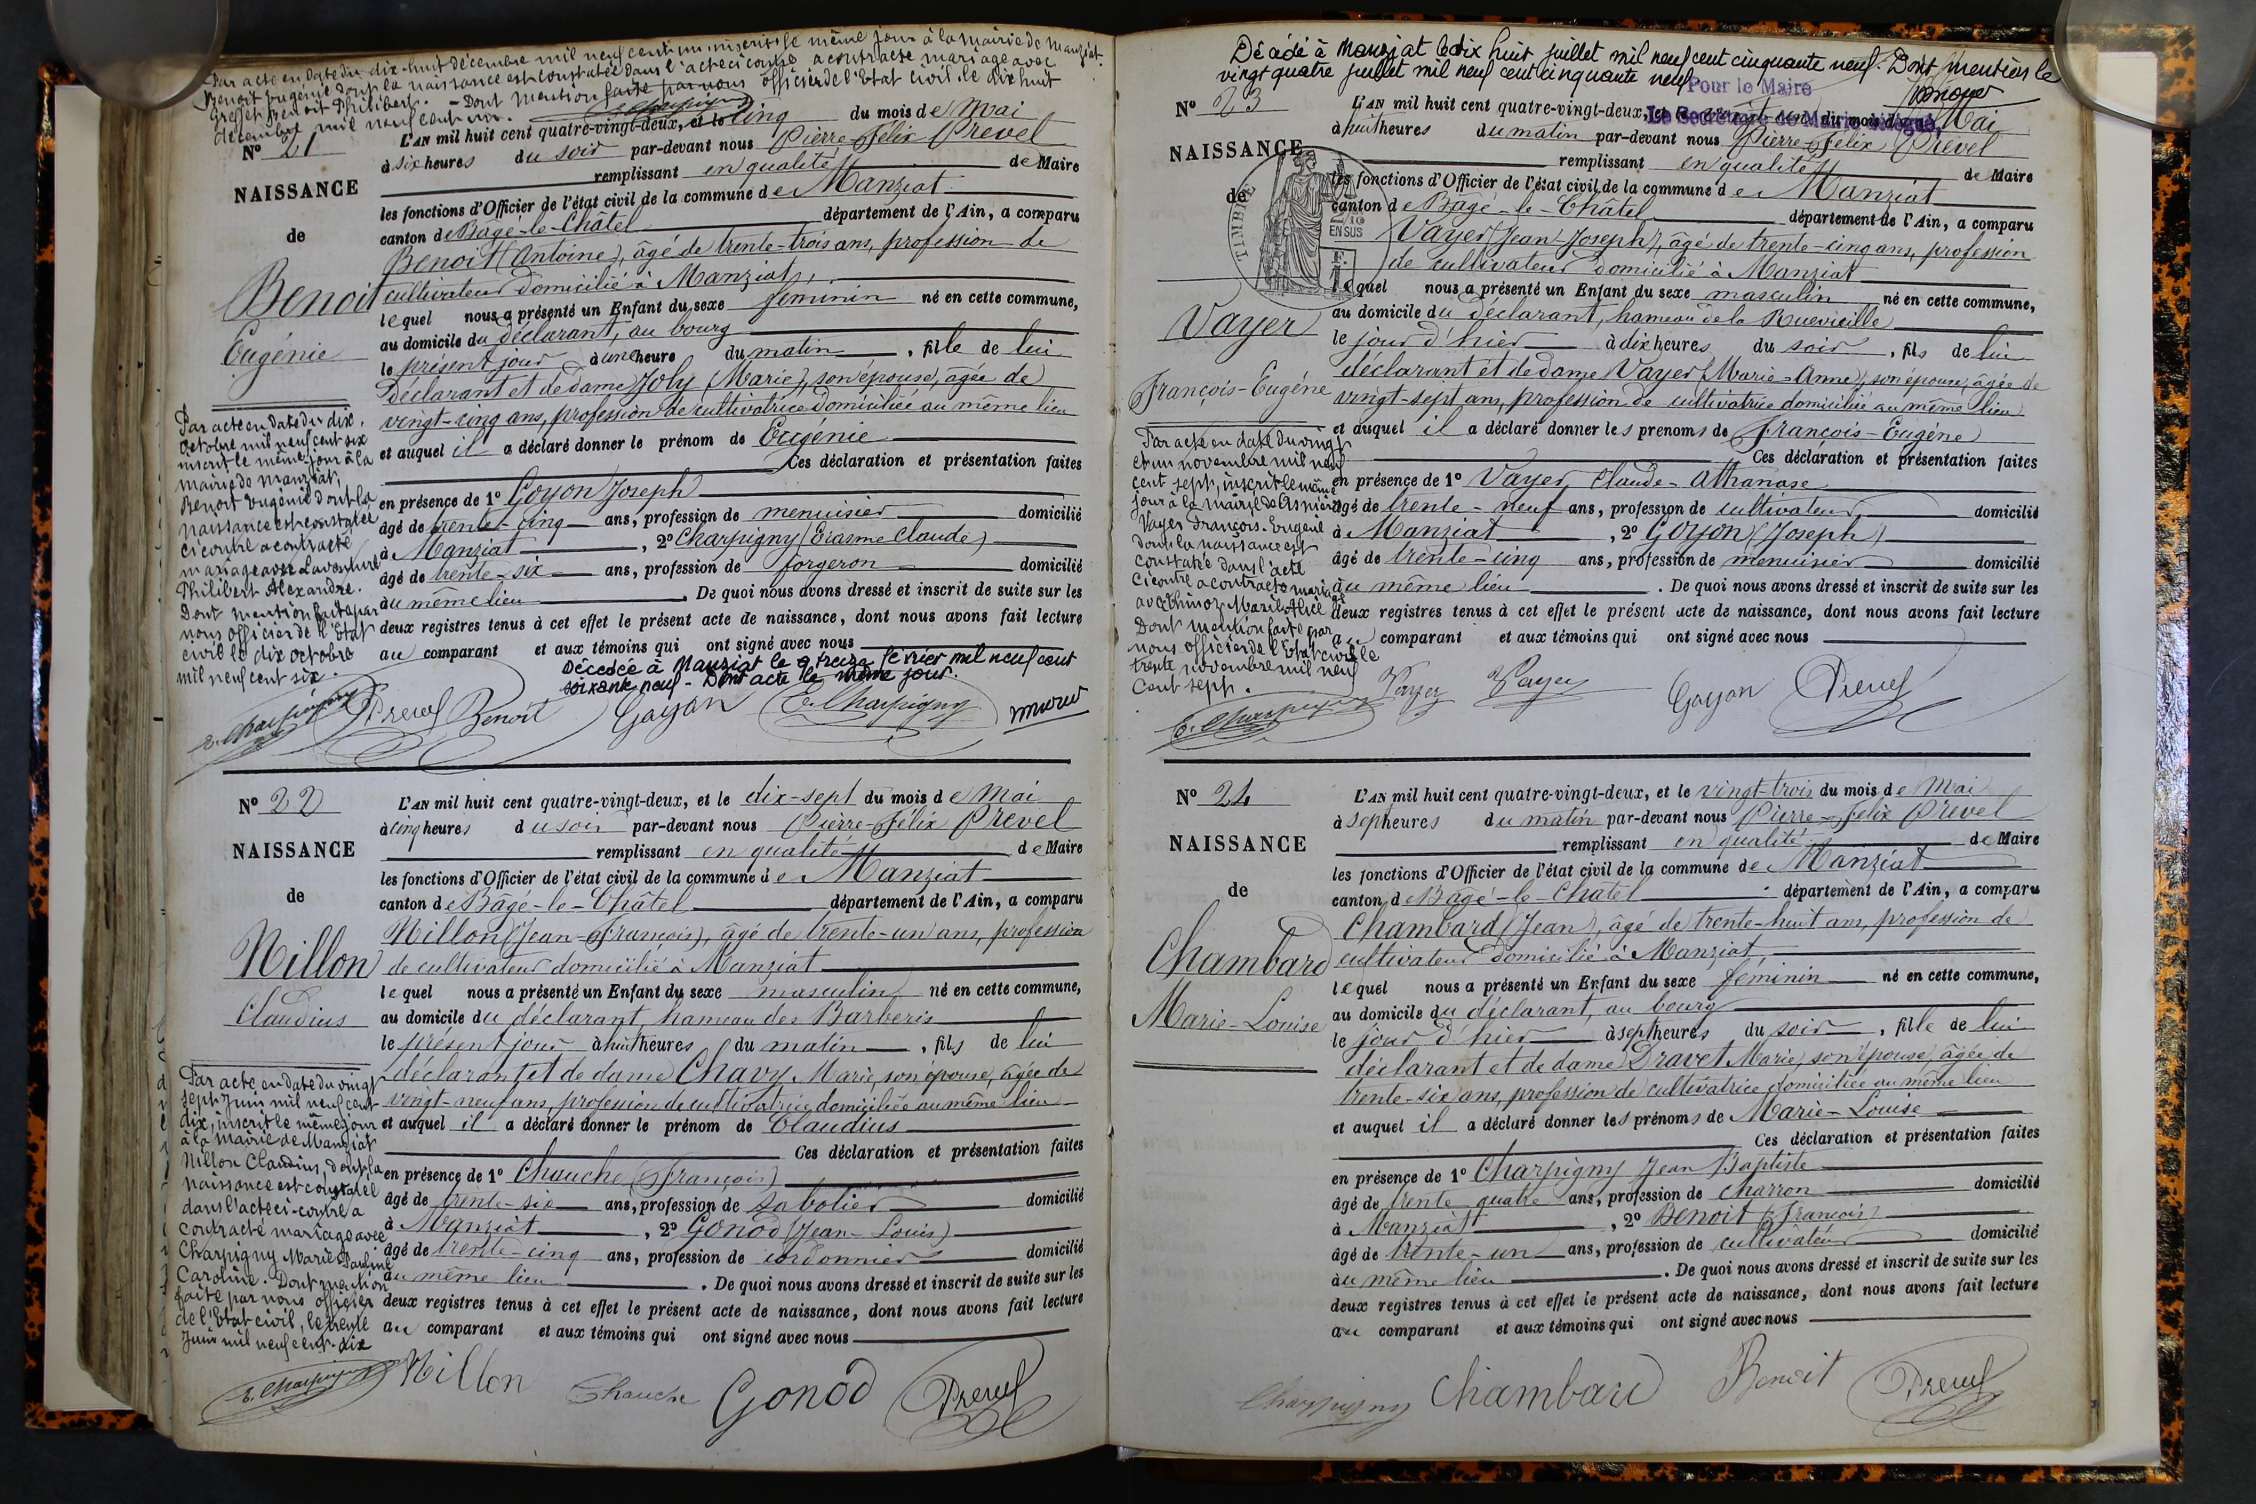 Par acte en date du dix-huit décembre mil neuf cent un inscrit le même jour à la mairie de Manziat.
Benoit Eugénie dont la naissance est constatée dans l'acte ci contre a contracté mariage avec
Benoit Philibert. - Dont mention faite par nous officier de l'Etat civil le dix huit
décembre mil neuf cent un.
N° 21
NAISSANCE
de
Benoit
Eugénie
Par acte en date du dix
octobre mil neuf cent six
inscrit le même jour à la
mairie de Manziat,
Benoit Eugénie dont la
naissance est constatée
ci contre a contracté
mariage avec Laventure
Philibert Alexandre.
Dont mention faite par
nous officier de l'Etat
civil le dix octobre
mil neuf cent six.
L'AN mil huit cent quatre-vingt-deux, et le cinq du mois de Mai
à six heures du soir par-devant nous Pierre-Félix Prevel
remplissant en qualité de Maire
les fonctions d'Officier de l'état civil de la commune de Manziat
canton de Bâgé-le-Châtel département de l'Ain, a comparu
Benoit (Antoine), âgé de trente-trois ans, profession de
cultivateur domicilié à Manziat,
lequel nous a présenté un Enfant du sexe féminin né en cette commune,
au domicile du déclarant, au bourg
le présent jour à une heure du matin, fille de lui
déclarant et de dame Joly (Marie), son épouse, âgée de
vingt-cinq ans, profession de cultivatrice domiciliée au même lieu
et auquel il a déclaré donner le prénom de Eugénie
Ces déclaration et présentation faites
en présence de 1° Goyon Joseph
âgé de trente-cinq ans, profession de menuisier domicilié
à Manziat, 2° Charpigny (Erasme Claude)
âgé de trente-six ans, profession de forgeron domicilié
au même lieu. De quoi nous avons dressé et inscrit de suite sur les
deux registres tenus à cet effet le présent acte de naissance, dont nous avons fait lecture
au comparant et aux témoins qui ont signé avec nous
Décédée à Manziat le treize février mil neuf cent
soixante neuf - Dont acte le même jour.
E. Charpigny Prevel Benoit Goyon E. Charpigny
N° 22
NAISSANCE
de
Nillon
Claudius
Par acte en date du vingt
sept Juin mil neuf cent
dix, inscrit le même jour
à la mairie de Manziat
Nillon Claudius, dont la
naissance est constatée
dans l'acte ci-contre a
contracté mariage avec
Charpigny Marie Pauline
Caroline. Dont mention
faite par nous officier
de l'Etat civil, le trente
Juin mil neuf cent dix
L'AN mil huit cent quatre-vingt-deux, et le dix-sept du mois de Mai
à cinq heures du soir par-devant nous Pierre-Félix Prevel
remplissant en qualité de Maire
les fonctions d'Officier de l'état civil de la commune de Manziat
canton de Bâgé-le-Châtel département de l'Ain, a comparu
Nillon (Jean-François), âgé de trente-un ans, profession
de cultivateur domicilié à Manziat
lequel nous a présenté un Enfant du sexe masculin né en cette commune,
au domicile du déclarant, hameau des Barberis
le présent jour à huit heures du matin, fils de lui
déclarant et de dame Chavy Marie, son épouse, âgée de
vingt-neuf ans, profession de cultivatrice domiciliée au même lieu
et auquel il a déclaré donner le prénom de Claudius
Ces déclaration et présentation faites
en présence de 1° Chauche (François)
âgé de trente-six ans, profession de sabotier domicilié
à Manziat, 2° Gonod (Jean-Louis)
âgé de trente-cinq ans, profession de cordonnier domicilié
au même lieu. De quoi nous avons dressé et inscrit de suite sur les
deux registres tenus à cet effet le présent acte de naissance, dont nous avons fait lecture
au comparant et aux témoins qui ont signé avec nous
E. Charpigny Nillon Chauche Gonod Prevel
Décédé à Manziat le dix huit juillet mil neuf cent cinquante neuf. Dont mention le
vingt quatre juillet mil neuf cent cinquante neuf
Pour le Maire
N° 23
NAISSANCE
de
Vayer
François-Eugène
TIMBRE
2/10
EN SUS
Par acte en date du vingt
et un novembre mil neuf
cent sept, inscrit le même
jour à la mairie de Asnières
Vayer François-Eugène
dont la naissance est
constatée dans l'acte
ci contre a contracté mariage
avec Chinoz Marie Alice
Dont mention faite par
nous officier de l'Etat civil le
trente novembre mil neuf
cent sept.
L'AN mil huit cent quatre-vingt-deux, et le du mois de Mai
à huit heures du matin par-devant nous Pierre-Félix Prevel
remplissant en qualité de Maire
les fonctions d'Officier de l'état civil de la commune de Manziat
canton de Bâgé-le-Châtel département de l'Ain, a comparu
Vayer (Jean-Joseph), âgé de trente-cinq ans, profession
de cultivateur domicilié à Manziat
lequel nous a présenté un Enfant du sexe masculin né en cette commune,
au domicile du déclarant, hameau de la Ruevieille
le jour d'hier à dix heures du soir, fils de lui
déclarant et de dame Vayer (Marie-Anne), son épouse, âgée de
vingt-sept ans, profession de cultivatrice domiciliée au même lieu
et auquel il a déclaré donner les prenoms de François-Eugène
Ces déclaration et présentation faites
en présence de 1° Vayer Claude-Athanase
âgé de trente-neuf ans, profession de cultivateur domicilié
à Manziat, 2° Goyon (Joseph)
âgé de trente-cinq ans, profession de menuisier domicilié
au même lieu. De quoi nous avons dressé et inscrit de suite sur les
deux registres tenus à cet effet le présent acte de naissance, dont nous avons fait lecture
au comparant et aux témoins qui ont signé avec nous
E. Charpigny Vayer Vayer Goyon Prevel
N° 24
NAISSANCE
de
Chambard
Marie-Louise
L'AN mil huit cent quatre-vingt-deux, et le vingt-trois du mois de Mai
à sept heures du matin par-devant nous Pierre-Félix Prevel
remplissant en qualité de Maire
les fonctions d'Officier de l'état civil de la commune de Manziat
canton de Bâgé-le-Châtel département de l'Ain, a comparu
Chambard (Jean), âgé de trente-huit ans, profession de
cultivateur domicilié à Manziat,
lequel nous a présenté un Enfant du sexe féminin né en cette commune,
au domicile du déclarant, au bourg
le jour d'hier à sept heures du soir, fille de lui
déclarant et de dame Dravet Marie, son épouse, âgée de
trente-six ans, profession de cultivatrice domiciliée au même lieu
et auquel il a déclaré donner les prénoms de Marie-Louise
Ces déclaration et présentation faites
en présence de 1° Charpigny Jean Baptiste
âgé de trente quatre ans, profession de charron domicilié
à Manziat, 2° Benoit (François)
âgé de trente-un ans, profession de cultivateur domicilié
au même lieu. De quoi nous avons dressé et inscrit de suite sur les
deux registres tenus à cet effet le présent acte de naissance, dont nous avons fait lecture
au comparant et aux témoins qui ont signé avec nous
Charpigny Chambard Benoit Prevel